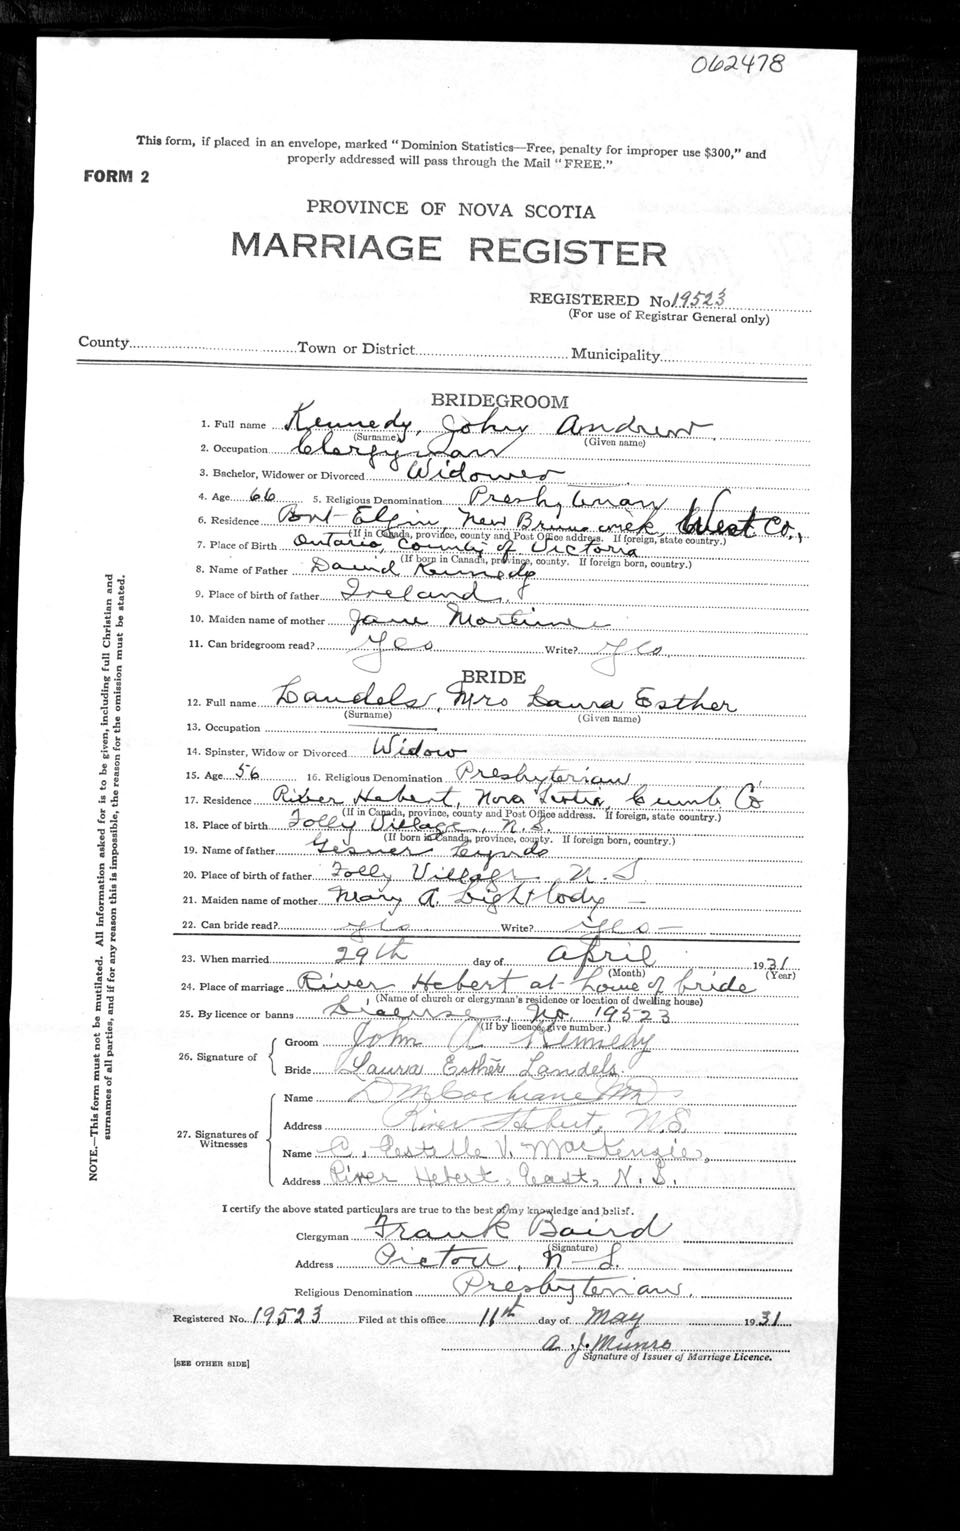 062478
This form, if placed in an envelope, marked "Dominion Statistics—Free, penalty for improper use $300," and
properly addressed will pass through the Mail "FREE."
FORM 2
PROVINCE OF NOVA SCOTIA
MARRIAGE REGISTER
REGISTERED No. 19523
(For use of Registrar General only)
County Town or District Municipality
BRIDEGROOM
1. Full name Kennedy, John Andrew
(Surname) (Given name)
2. Occupation Clergyman
3. Bachelor, Widower or Divorced Widower
4. Age 66 5. Religious Denomination Presbyterian
6. Residence Port Elgin, New Brunswick, West Co.,
(If in Canada, province, county and Post Office address. If foreign, state country.)
7. Place of Birth Ontario, County of Victoria
(If born in Canada, province, county. If foreign born, country.)
8. Name of Father David Kennedy
9. Place of birth of father Ireland
10. Maiden name of mother Jane
11. Can bridegroom read? Yes Write? Yes
BRIDE
12. Full name Landels, Mrs Laura Esther
(Surname) (Given name)
13. Occupation
14. Spinster, Widow or Divorced Widow
15. Age 56 16. Religious Denomination Presbyterian
17. Residence River Hebert, Nova Scotia, Cumb Co
(If in Canada, province, county and Post Office address. If foreign, state country.)
18. Place of birth Folly Village, N.S.
(If born in Canada, province, county. If foreign born, country.)
19. Name of father Gesner
20. Place of birth of father Folly Village N.S
21. Maiden name of mother Mary A. Lightbody —
22. Can bride read? Yes Write? Yes —
23. When married 29th day of April 1931
(Month) (Year)
24. Place of marriage River Hebert at home of bride
(Name of church or clergyman's residence or location of dwelling house)
25. By licence or banns License, No. 19523
(If by licence, give number.)
26. Signature of Groom John A Kennedy
Bride Laura Esther Landels.
27. Signatures of Witnesses Name D M Cochrane MD
Address River Hebert, N.S.
Name A. Estelle V. MacKenzie,
Address River Hebert, East, N. S.
I certify the above stated particulars are true to the best of my knowledge and belief.
Clergyman Frank Baird
(Signature)
Address Pictou, N-S.
Religious Denomination Presbyterian.
Registered No. 19523 Filed at this office 11th day of May 1931
A. J. Munro
Signature of Issuer of Marriage Licence.
[SEE OTHER SIDE]
NOTE.—This form must not be mutilated. All information asked for is to be given, including full Christian and
surnames of all parties, and if for any reason this is impossible, the reason for the omission must be stated.